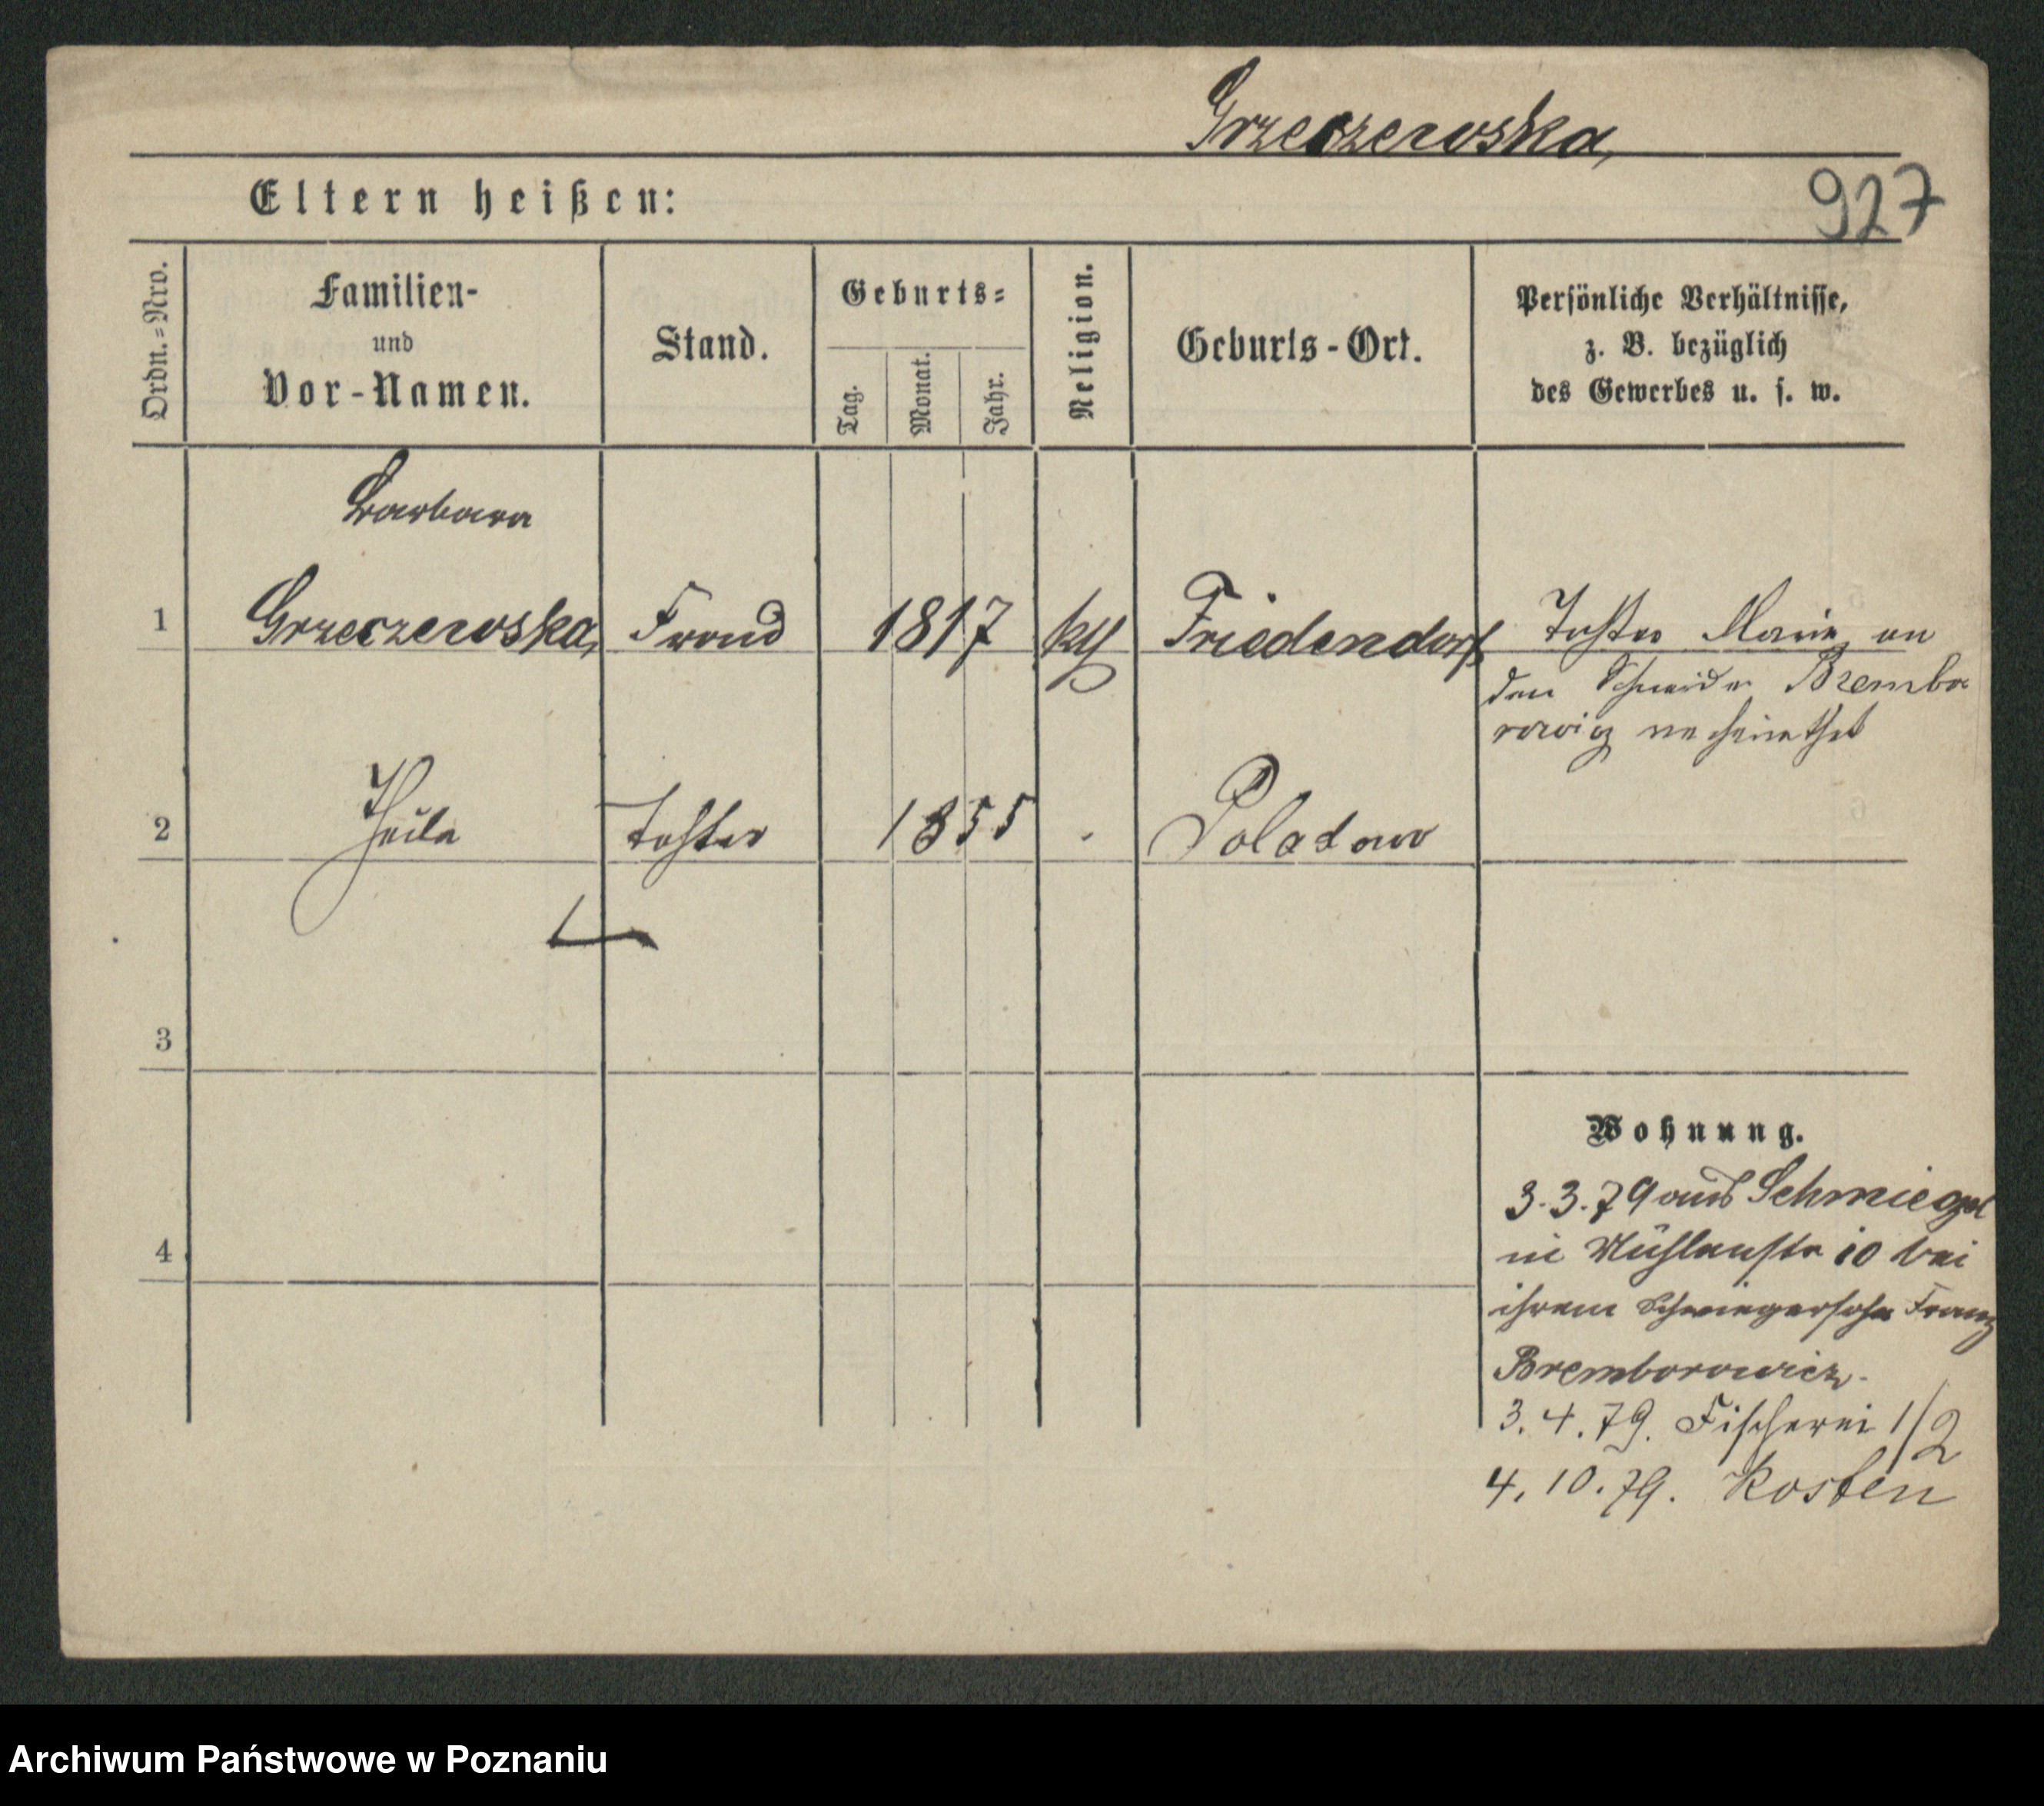 Grzeczewska,
927
Eltern heißen:
Ordn.=Nro.
Familien-
und
Vor-Namen.
Stand.
Geburts=
Tag.
Monat.
Jahr.
Religion.
Geburts-Ort.
Persönliche Verhältnisse,
z. B. bezüglich
des Gewerbes u. s. w.
Barbara
1 Grzeczewska, 1817 Friedendorf Tochter Marie an
den Schneider Brembo
rowicz verheirathet
2 1855 Poladowo
Tochter
3
4
Wohnung.
3.3.79 aus Schmiegel
in Mühlenstr 10 bei
ihrem Schwiegersohn Franz
Bremborowicz.
3.4.79. Fischerei 1/2
4.10.79. Kosten
Archiwum Państwowe w Poznaniu